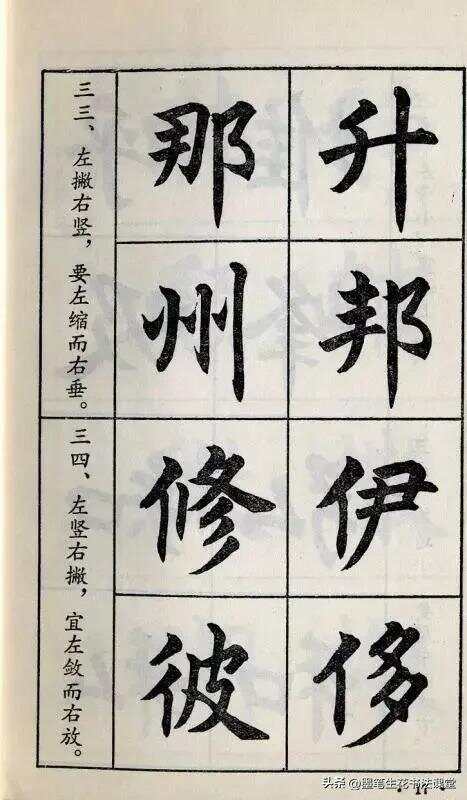 三三、左撇右竖，要左缩而右垂。
那 升
州 邦
三四、左竖右撇，宜左敛而右放。
修 伊
彼 侈
·17·
头条 @墨笔生花书法课堂